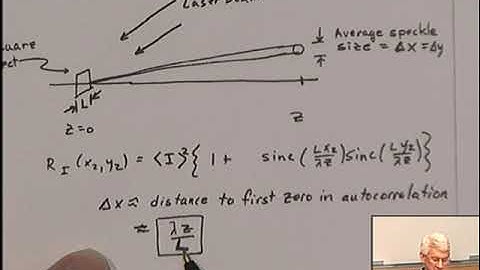 Laser beam
Average speckle
size = Δx = Δy
L
z=0
z
R_I (x₂,y₂) = ⟨I⟩² { 1 + sinc(Lx₂/λz) sinc(Ly₂/λz) }
Δx ≈ distance to first zero in autocorrelation
≈ λz/L